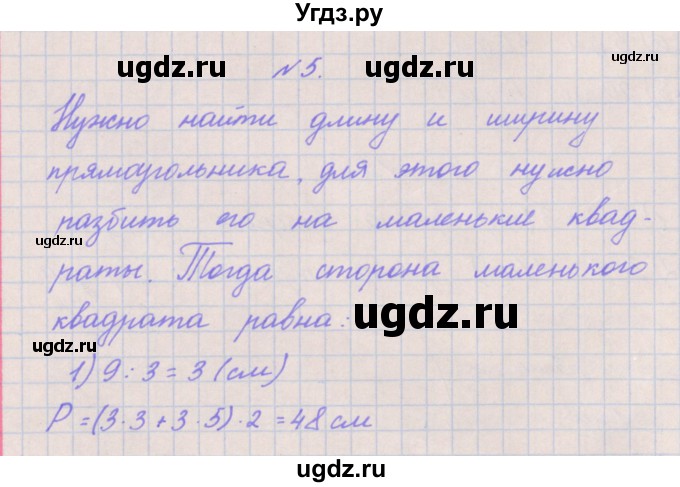 Угдз.ру
ugdz.ru № 5. ugdz.ru
ugdz.ru
Нужно найти длину и ширину
прямоугольника, для этого нужно
разбить его на маленькие квад-
ugdz.ru
раты. Тогда сторона маленького
квадрата равна: ugdz.ru
ugdz.ru
1) 9 : 3 = 3 (см)
P = (3 · 3 + 3 · 5) · 2 = 48 см
ugdz.ru